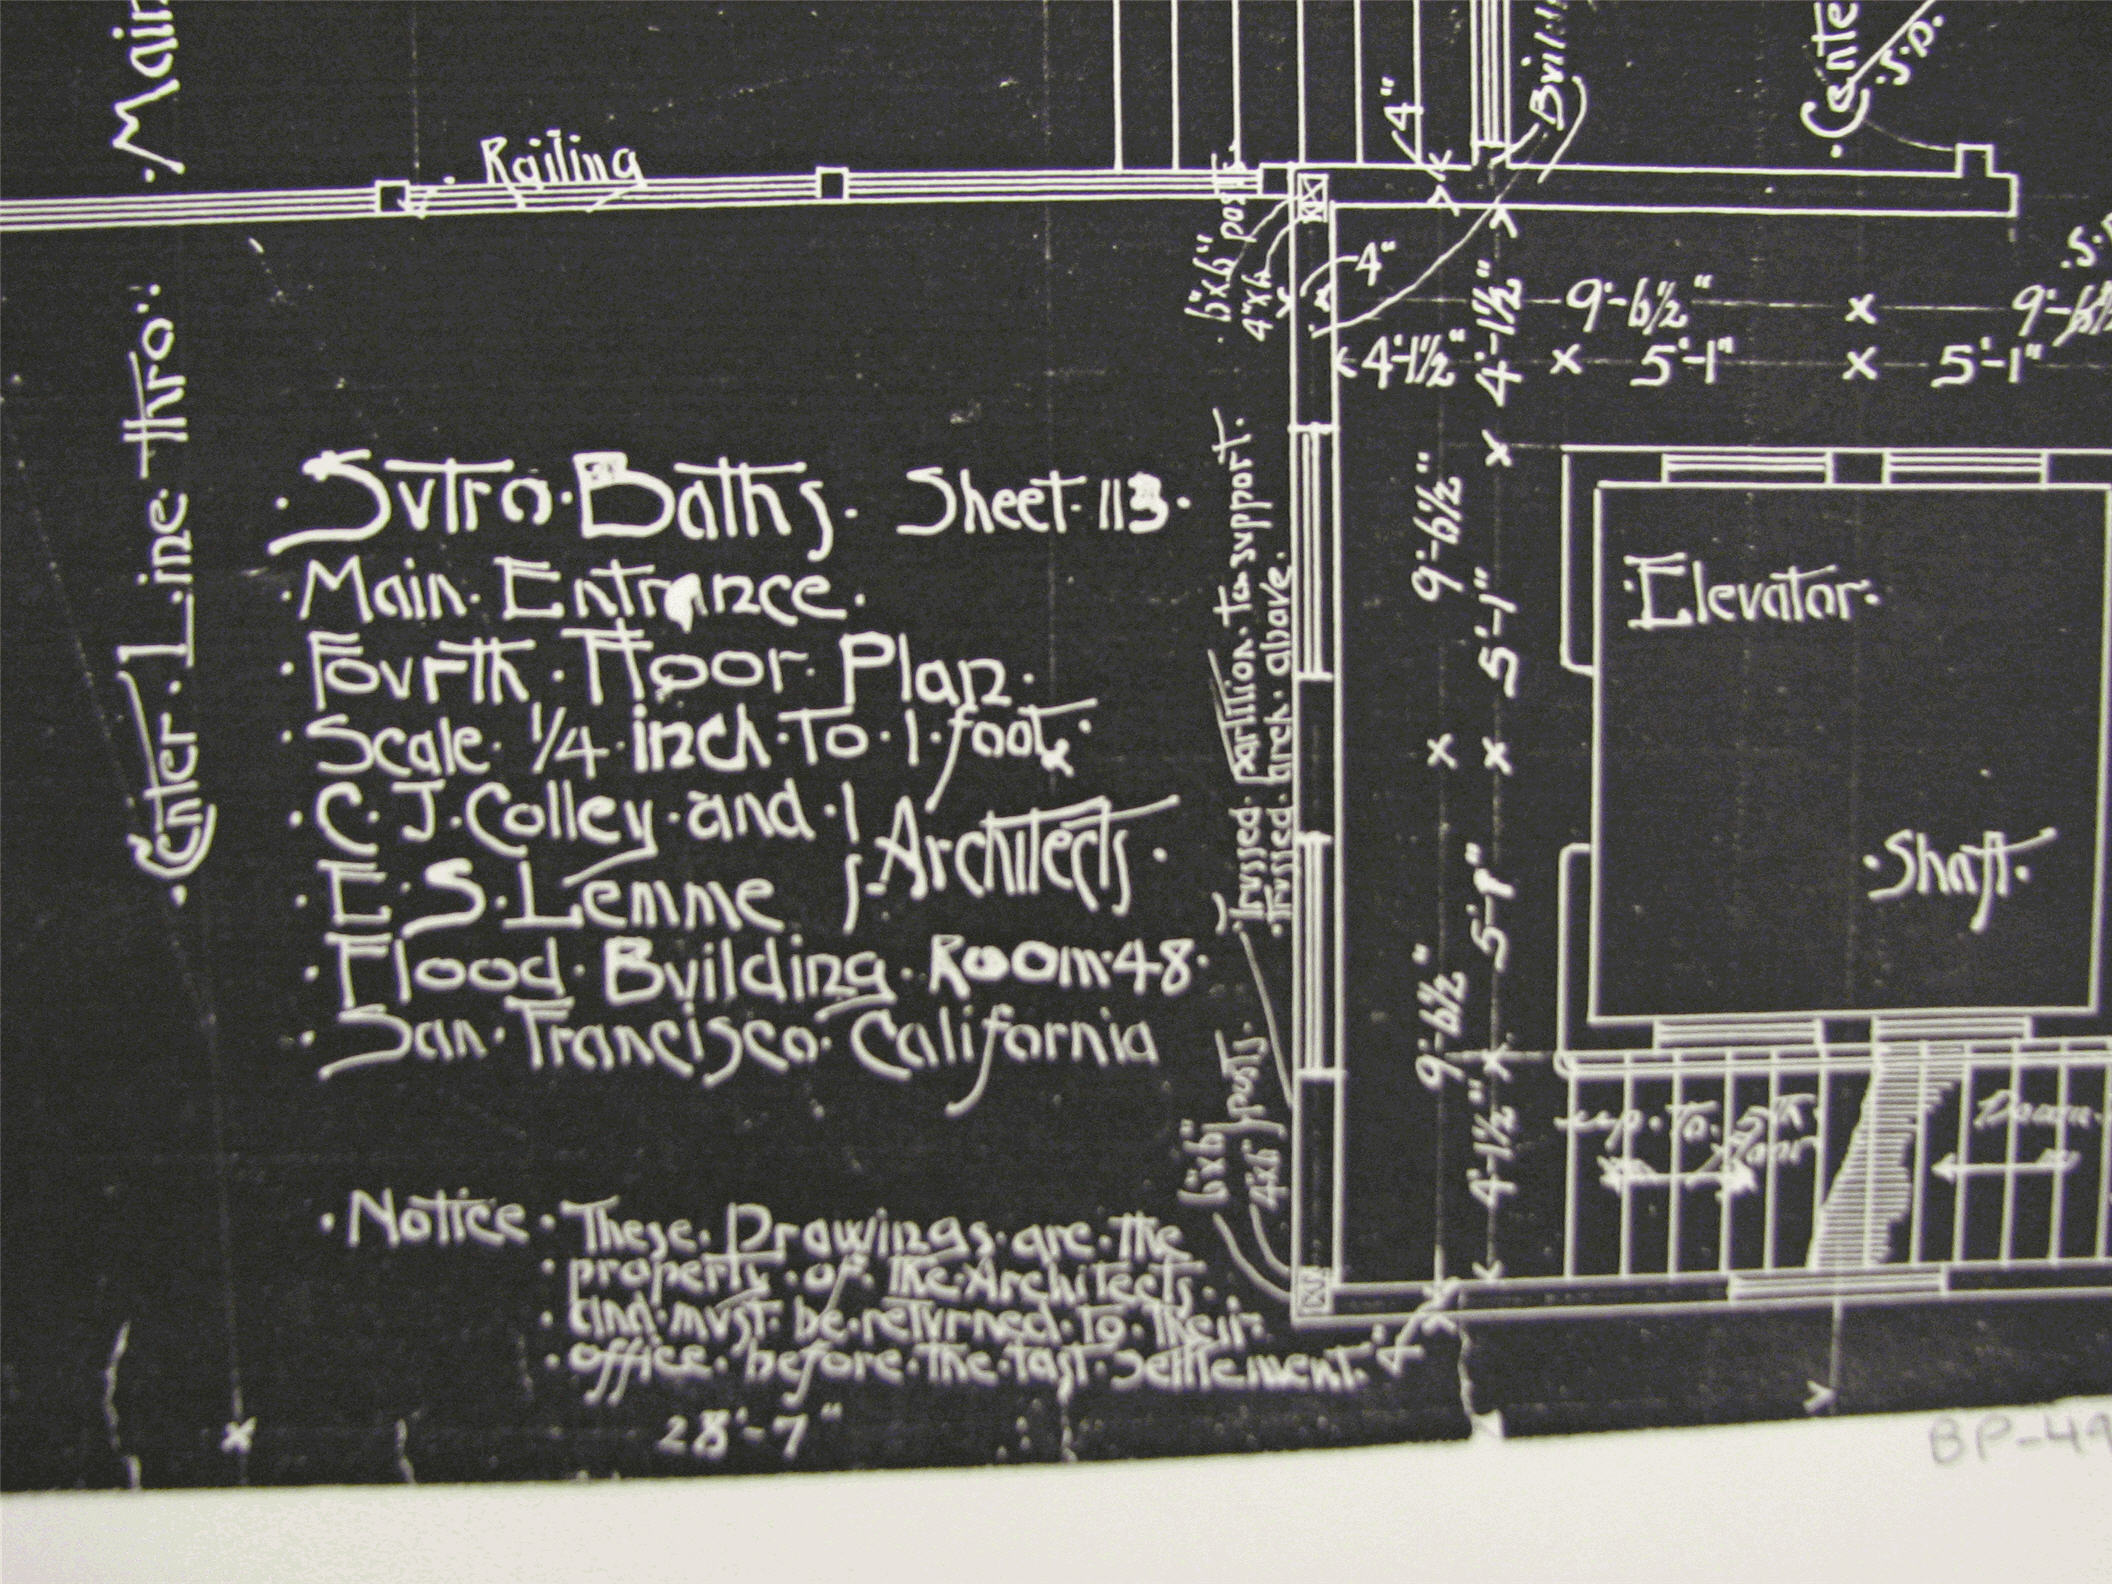 Main
Railing
4"
Center
S.D.
6"x6" posts
4"x6"
4"
4'-1½"
9'-6½"
4'-1½"
5'-1"
5'-1"
Center Line thro
·Sutro·Baths· Sheet·113·
·Main·Entrance·
·Fourth·Floor·Plan·
·Scale·1/4·inch·To·1·foot·
·C·J·Colley·and·
·E·S·Lemme
Architects·
·Flood·Building·Room·48·
·San·Francisco·California
·Trussed·partition·to support·
·Trussed·arch·above·
9'-6½"
5'-1"
·Elevator·
·Shaft·
9'-6½"
5'-1"
4'-1½"
6"x6"
4"x6" posts
up·To·5th
Floor
Down
·Notice·These·Drawings·are·the
·property·of·the·Architects·
·and·must·be·returned·to·their·
·office·before·the·last·settlement·
28'-7"
BP-49